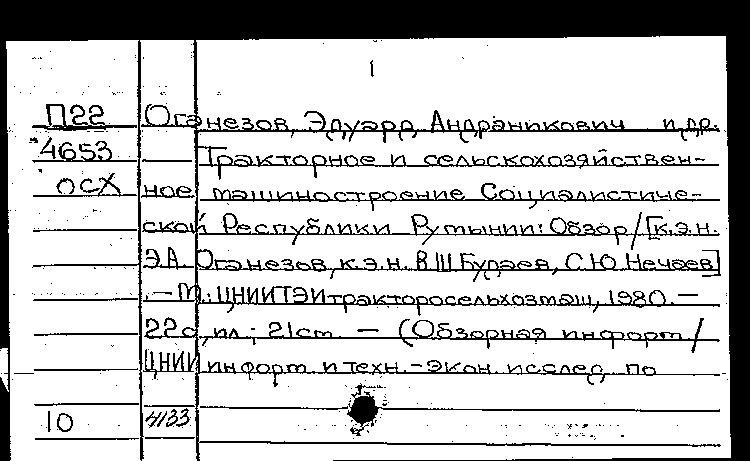 1
П22 Оганезов, Эдуард Андраникович и др.
4653 Тракторное и сельскохозяйствен-
ОСХ ное машиностроение Социалистиче-
ской Республики Румынии: Обзор / [к.э.н.
Э.А. Оганезов, к.э.н. В.Ш. Бураев, С.Ю. Нечаев]
. — М.: ЦНИИТЭИтракторосельхозмаш, 1980. —
22с., ил.; 21см. — (Обзорная информ /
ЦНИИ информ. и техн.-экон. исслед. по
10 4133